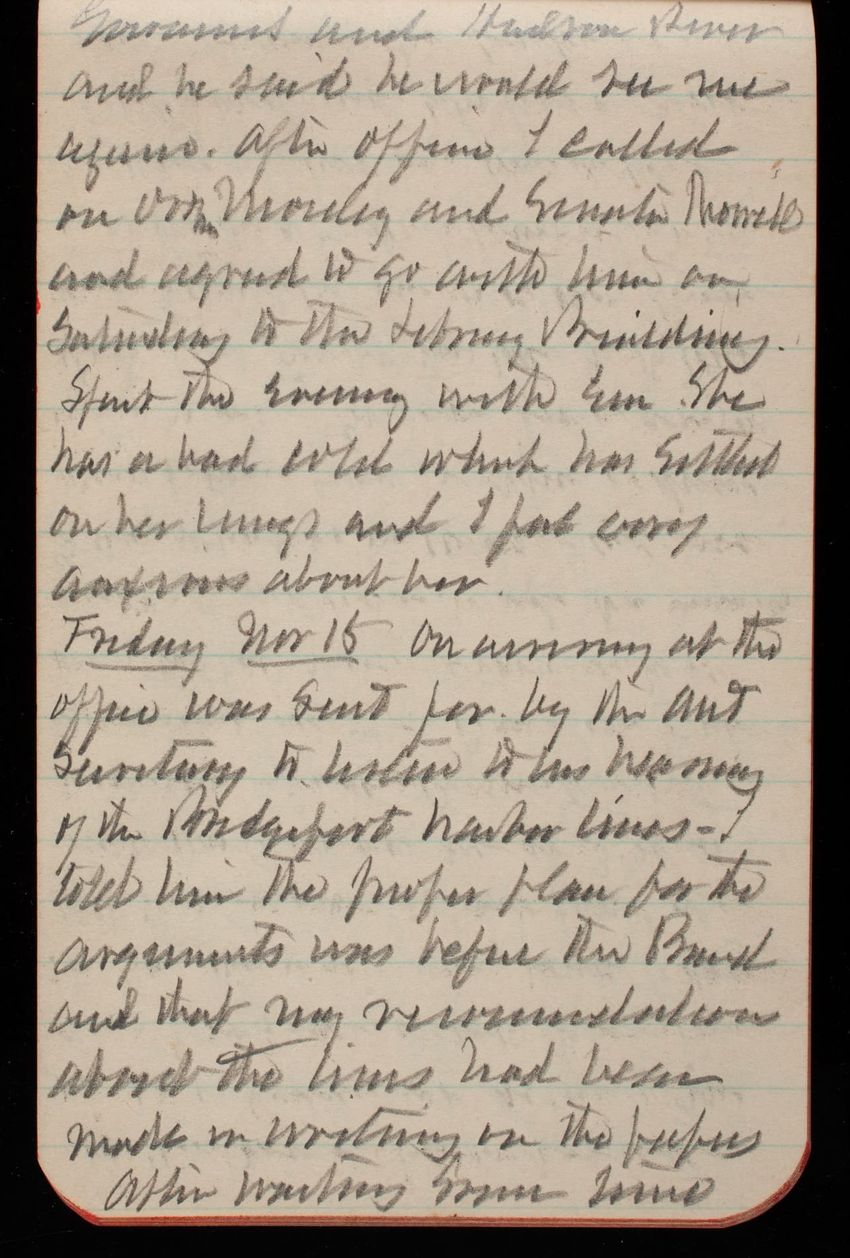 and Hudson River
and he said he would see me
again. After office I called
on Mrs and Senator
and agreed to go with him on
Saturday to the Library Building.
Spent the evening with Em She
has a bad cold which has settled
on her lungs and I feel very
anxious about her.
Friday Nov 15 On arriving at the
office was sent for by the Asst
Secretary to listen to his hearing
of the Bridgeport harbor lines - I
told him the proper place for the
arguments was before the Board
and that my recommendation
about the lines had been
made in writing on the papers
After waiting some time